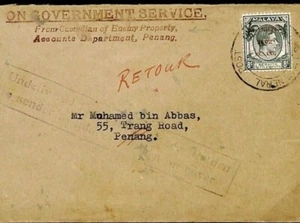 ON GOVERNMENT SERVICE.
From Custodian of Enemy Property,
Accounts Department, Penang.
MALAYA
RETOUR
Mr Muhamed bin Abbas,
55, Trang Road,
Penang.